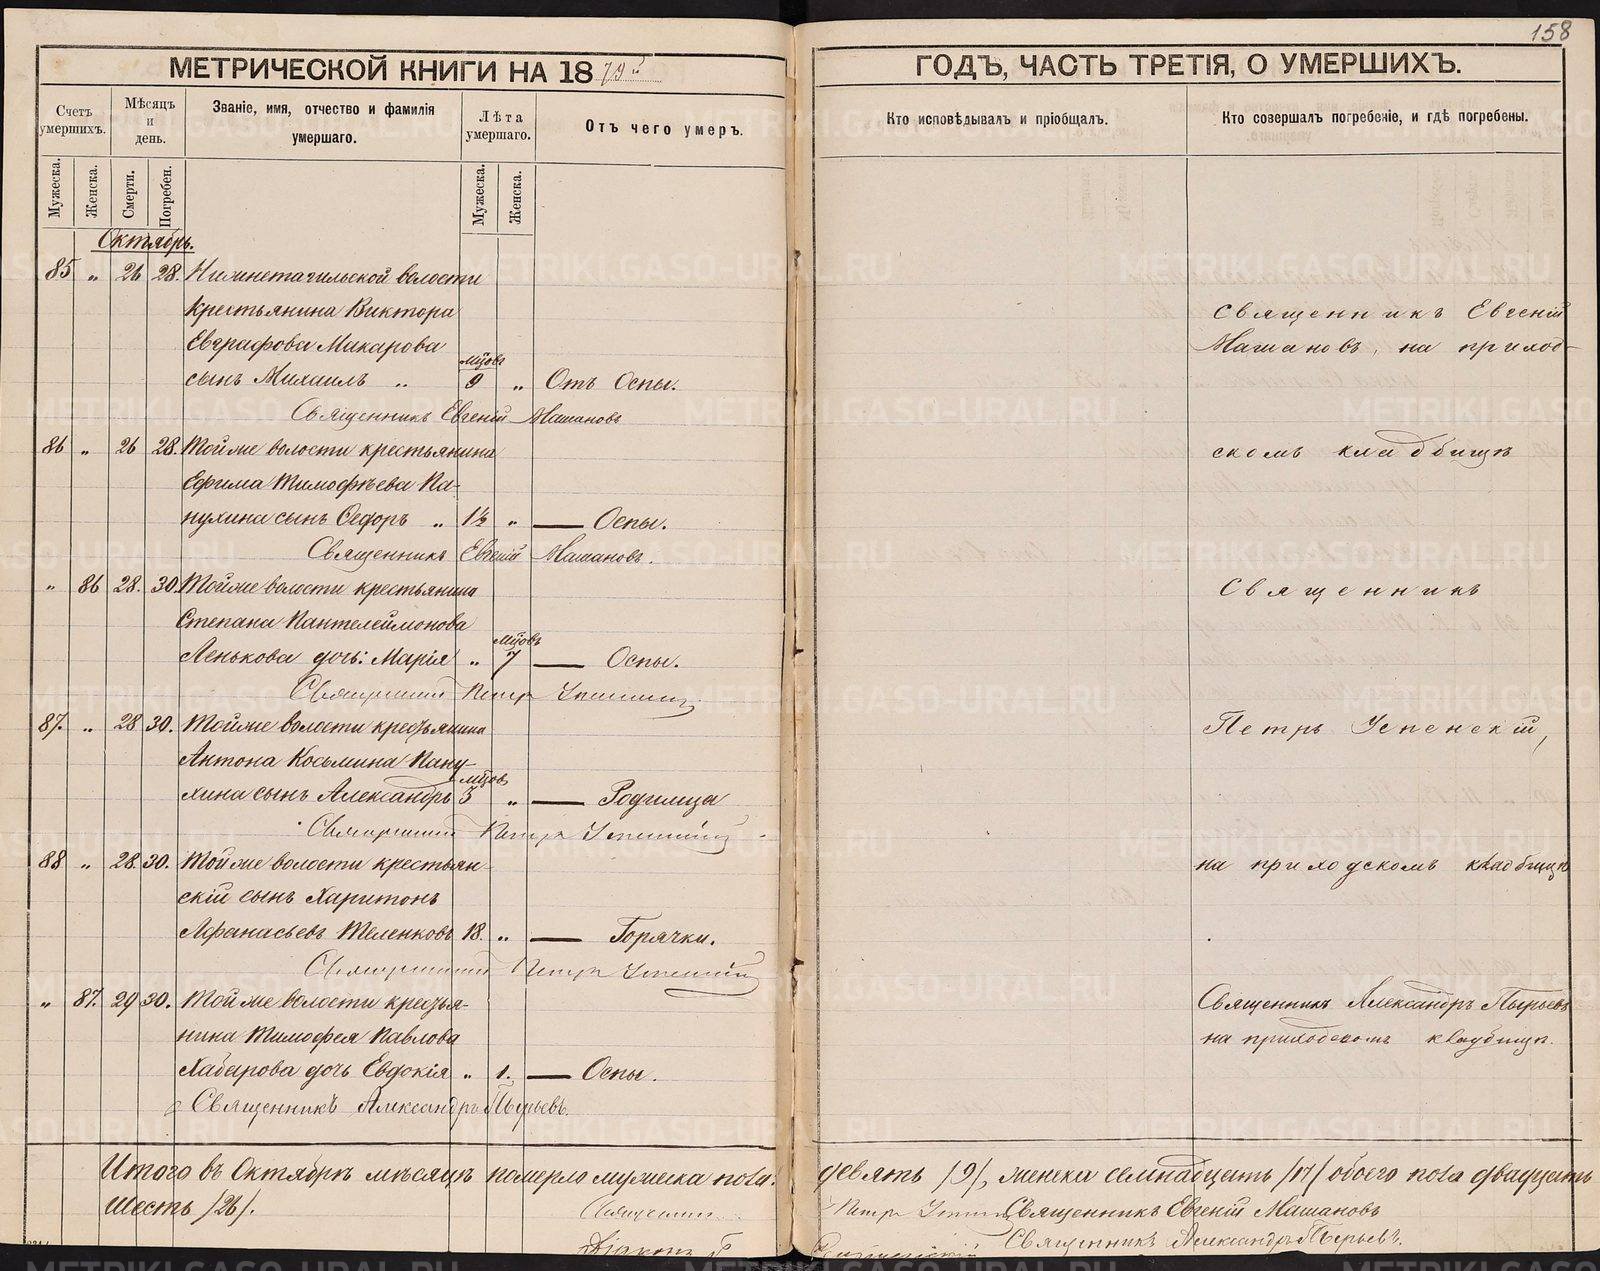 158
МЕТРИЧЕСКОЙ КНИГИ НА 1879й
ГОДЪ, ЧАСТЬ ТРЕТІЯ, О УМЕРШИХЪ.
Счетъ умершихъ.
Мѣсяцъ и день.
Званіе, имя, отчество и фамилія умершаго.
Лѣта умершаго.
Отъ чего умеръ.
Кто исповѣдывалъ и пріобщалъ.
Кто совершалъ погребеніе, и гдѣ погребены.
Мужеска.
Женска.
Смерти.
Погребен.
Мужеска.
Женска.
Октябрь.
85 „ 26 28. Нижнетагильской волости
крестьянина Виктора
Евграфова Макарова
мцовъ
сынъ Михаилъ „ 9 „ Отъ Оспы.
Священникъ Евгеній Машановъ
Священникъ Евгеній
Машановъ, на приход-
86 „ 26 28. Тойже волости крестьянина
Ефима Тимофѣева Па-
пухина сынъ Ѳедоръ „ 1½ „ — Оспы.
Священникъ Евгеній Машановъ.
скомъ кладбищѣ
„ 86 28. 30. Тойже волости крестьянина
Степана Пантелеймонова
мцовъ
Ленькова дочь: Марія „ 7 — Оспы.
Священникъ Петръ Успенскій
Священникъ
87. „ 28 30. Тойже волости крестьянина
Антона Косьмина Папу-
мцов
хина сынъ Александръ 3 „ — Родимца
Священникъ Петръ Успенскій
Петръ Успенскій,
88 „ 28. 30. Тойже волости крестьян-
скій сынъ Харитонъ
Афанасьевъ Теленковъ 18. „ — Горячки.
Священникъ Петръ Успенскій
на приходскомъ кладбищѣ
„ 87. 29 30. Тойже волости крестья-
нина Тимофея Павлова
Хабарова дочь Евдокія „ 1. — Оспы.
Священникъ Александръ Пырьевъ.
Священникъ Александръ Пырьевъ
на приходскомъ кладбищѣ.
Итого въ Октябрѣ мѣсяцѣ померло мужеска пола девять /9/, женска семнадцать /17/ обоего пола двадцать
шесть /26/.
Священникъ Петръ Успенскій Священникъ Евгеній Машановъ
Священникъ Александръ Пырьевъ.
Діаконъ
METRIKI.GASO-URAL.RU